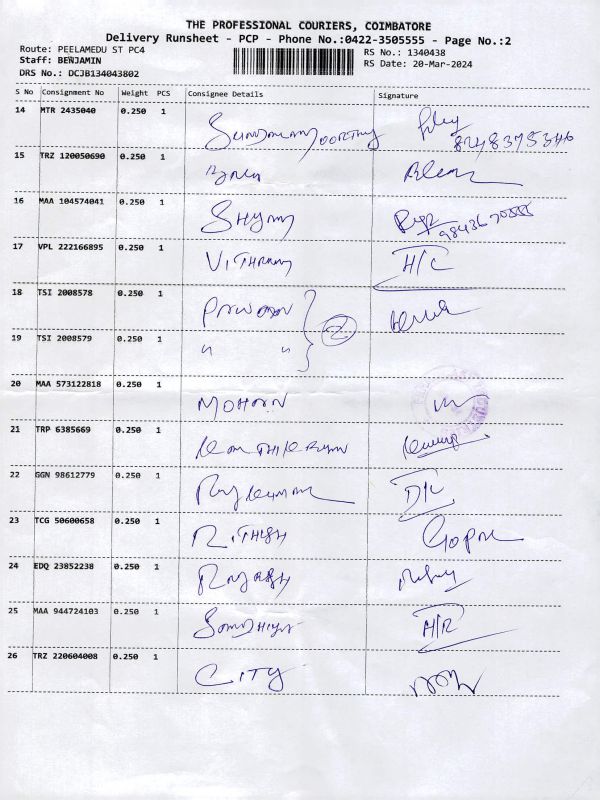 THE PROFESSIONAL COURIERS, COIMBATORE
Delivery Runsheet - PCP - Phone No.:0422-3505555 - Page No.:2
Route: PEELAMEDU ST PC4
RS No.: 1340438
Staff: BENJAMIN
RS Date: 20-Mar-2024
DRS No.: DCJB134043802
S No Consignment No Weight PCS Consignee Details Signature
14 MTR 2435040 0.250 1
8248375346
15 TRZ 120050690 0.250 1
16 MAA 104574041 0.250 1 SHYAM
17 VPL 222166895 0.250 1 VITHRAM H/C
18 TSI 2008578 0.250 1 2
19 TSI 2008579 0.250 1 " "
20 MAA 573122818 0.250 1 MOHAN
21 TRP 6385669 0.250 1
22 GGN 98612779 0.250 1 Rajkumar
23 TCG 50600658 0.250 1 RITHISH Gopal
24 EDQ 23852238 0.250 1 RAJESH
25 MAA 944724103 0.250 1 A/R
26 TRZ 220604008 0.250 1 CITY